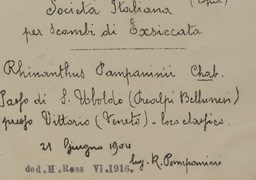 (Copia)
Società Italiana
per Scambi di Exsiccata.
Rhinanthus Pampaninii Chab.
Passo di S. Uboldo (Prealpi Bellunesi)
presso Vittorio (Veneto) - loco classico.
21 Giugno 1904
leg. R. Pampanini
ded. H. Ross VI. 1916.